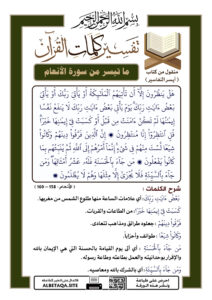 بسم الله الرحمن الرحيم
تفسير كلمات القرآن
منقول من كتاب
( أيسر التفاسير )
ما تيسر من سورة الأنعام
هَلْ يَنظُرُونَ إِلَّا أَن تَأْتِيَهُمُ الْمَلَائِكَةُ أَوْ يَأْتِيَ رَبُّكَ أَوْ يَأْتِيَ
بَعْضُ آيَاتِ رَبِّكَ يَوْمَ يَأْتِي بَعْضُ آيَاتِ رَبِّكَ لَا يَنفَعُ نَفْسًا
إِيمَانُهَا لَمْ تَكُنْ آمَنَتْ مِن قَبْلُ أَوْ كَسَبَتْ فِي إِيمَانِهَا خَيْرًا
قُلِ انتَظِرُوا إِنَّا مُنتَظِرُونَ إِنَّ الَّذِينَ فَرَّقُوا دِينَهُمْ وَكَانُوا
شِيَعًا لَّسْتَ مِنْهُمْ فِي شَيْءٍ إِنَّمَا أَمْرُهُمْ إِلَى اللَّهِ ثُمَّ يُنَبِّئُهُم بِمَا
كَانُوا يَفْعَلُونَ مَن جَاءَ بِالْحَسَنَةِ فَلَهُ عَشْرُ أَمْثَالِهَا وَمَن
جَاءَ بِالسَّيِّئَةِ فَلَا يُجْزَىٰ إِلَّا مِثْلَهَا وَهُمْ لَا يُظْلَمُونَ
[الأنعام : 158 - 160]
شرح الكلمات :
بَعْضُ آيَاتِ رَبِّكَ : أي علامات الساعة منها طلوع الشمس من مغربها.
كَسَبَتْ فِي إِيمَانِهَا خَيْرًا : من الطاعات والقربات.
فَرَّقُوا دِينَهُمْ : جعلوه طرائق ومذاهب تتعادى.
وَكَانُوا شِيَعًا : طوائف وأحزاباً.
مَن جَاءَ بِالْحَسَنَةِ : أي أتى يوم القيامة بالحسنة التي هي الإيمان بالله
والإقرار بوحدانيته والعمل بطاعته وطاعة رسوله.
وَمَن جَاءَ بِالسَّيِّئَةِ : أي بالشرك بالله ومعاصيه.
ALBETAQA.SITE